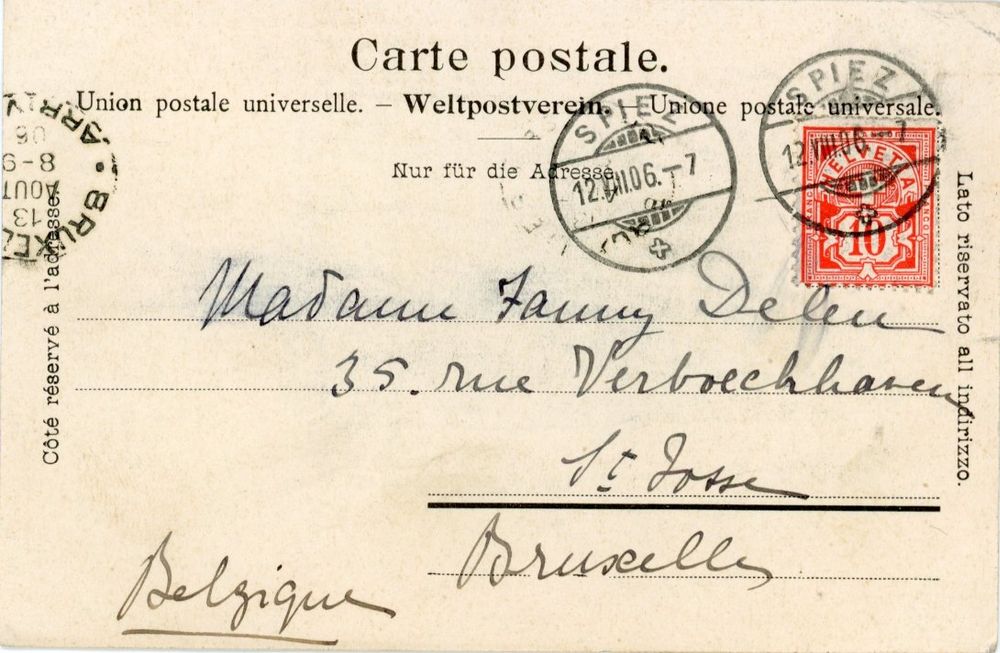 Carte postale.
Union postale universelle. – Weltpostverein. – Unione postale universale.
Nur für die Adresse.
Côté réservé à l'adresse.
Lato riservato all indirizzo.
SPIEZ
12.VIII.06.-7
SPIEZ
12.VIII.06.-7
HELVETIA
FRANCO
FRANCO
10
BRUXEL
ARRIV
13
AOUT
8-9
06
Madame Fanny Delen
35. rue Verboeckhaven
St Josse
Bruxelles
Belgique